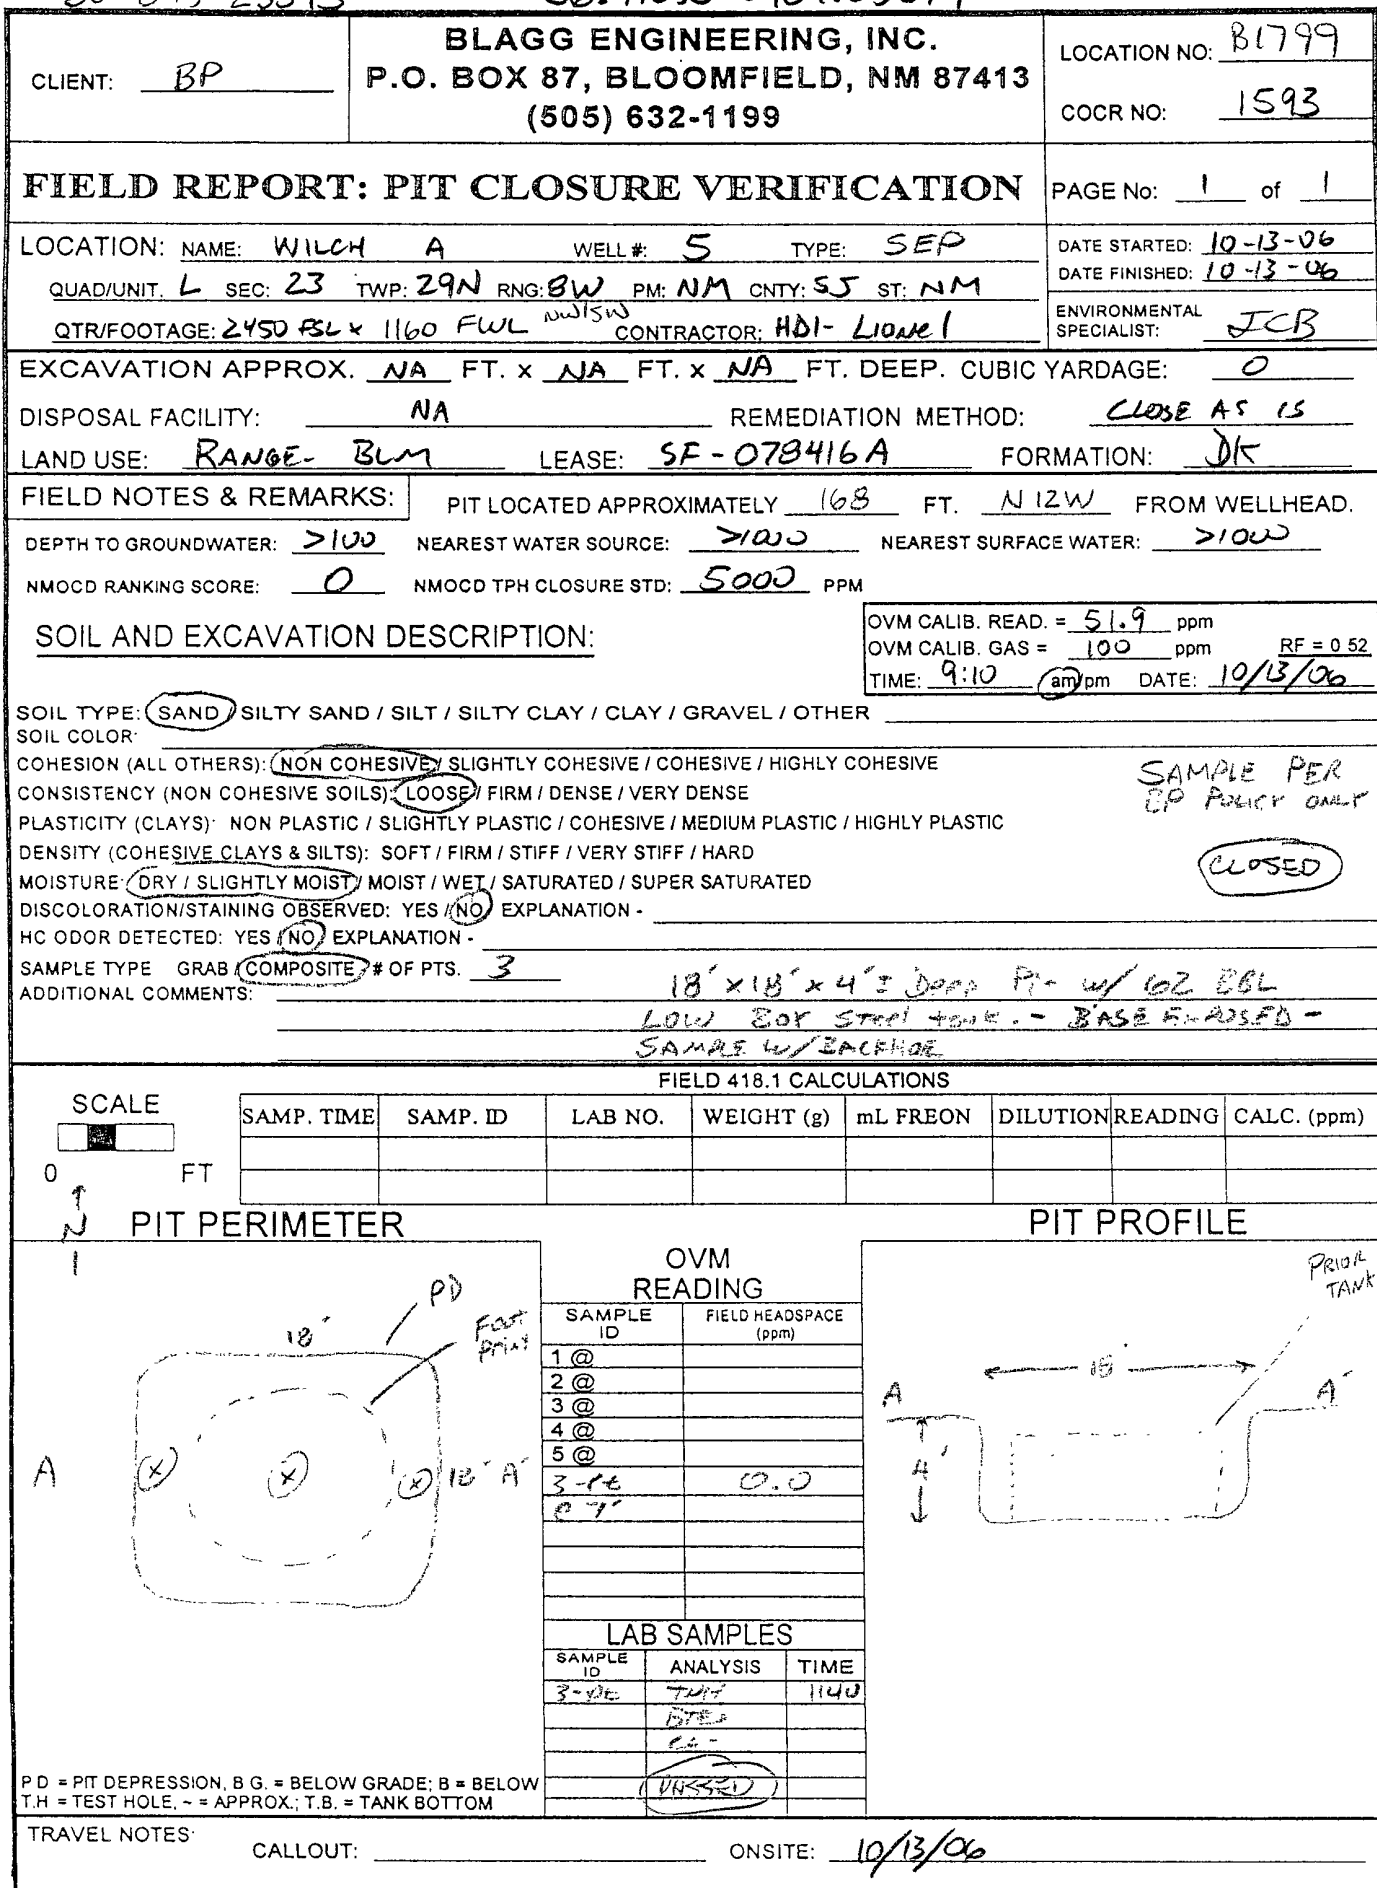 BLAGG ENGINEERING, INC.
P.O. BOX 87, BLOOMFIELD, NM 87413
(505) 632-1199
CLIENT: BP
LOCATION NO: B1799
COCR NO: 1593
FIELD REPORT: PIT CLOSURE VERIFICATION
PAGE No: 1 of 1
LOCATION: NAME: WILCH A WELL #: 5 TYPE: SEP
DATE STARTED: 10-13-06
DATE FINISHED: 10-13-06
QUAD/UNIT. L SEC: 23 TWP: 29N RNG: 8W PM: NM CNTY: SJ ST: NM
QTR/FOOTAGE: 2450 FSL x 1160 FWL NW/SW CONTRACTOR: HDI- Lionel
ENVIRONMENTAL
SPECIALIST: JCB
EXCAVATION APPROX. NA FT. x NA FT. x NA FT. DEEP. CUBIC YARDAGE: 0
DISPOSAL FACILITY: NA REMEDIATION METHOD: CLOSE AS IS
LAND USE: RANGE- BLM LEASE: SF-078416A FORMATION: DK
FIELD NOTES & REMARKS: PIT LOCATED APPROXIMATELY 168 FT. N12W FROM WELLHEAD.
DEPTH TO GROUNDWATER: >100 NEAREST WATER SOURCE: >1000 NEAREST SURFACE WATER: >1000
NMOCD RANKING SCORE: 0 NMOCD TPH CLOSURE STD: 5000 PPM
SOIL AND EXCAVATION DESCRIPTION:
OVM CALIB. READ. = 51.9 ppm
OVM CALIB. GAS = 100 ppm RF = 0 52
TIME: 9:10 am/pm DATE: 10/13/06
SOIL TYPE: SAND / SILTY SAND / SILT / SILTY CLAY / CLAY / GRAVEL / OTHER
SOIL COLOR:
COHESION (ALL OTHERS): NON COHESIVE / SLIGHTLY COHESIVE / COHESIVE / HIGHLY COHESIVE
CONSISTENCY (NON COHESIVE SOILS): LOOSE / FIRM / DENSE / VERY DENSE
PLASTICITY (CLAYS): NON PLASTIC / SLIGHTLY PLASTIC / COHESIVE / MEDIUM PLASTIC / HIGHLY PLASTIC
DENSITY (COHESIVE CLAYS & SILTS): SOFT / FIRM / STIFF / VERY STIFF / HARD
MOISTURE: DRY / SLIGHTLY MOIST / MOIST / WET / SATURATED / SUPER SATURATED
DISCOLORATION/STAINING OBSERVED: YES / NO EXPLANATION -
HC ODOR DETECTED: YES / NO EXPLANATION -
SAMPLE TYPE GRAB / COMPOSITE # OF PTS. 3
SAMPLE PER
BP POLICY ONLY
CLOSED
ADDITIONAL COMMENTS: 18' x 18' x 4'± Deep Pit w/ 62 BBL
LOW BOY Steel tank. - BASE EXPOSED -
SAMPLE W/ BACKHOE
FIELD 418.1 CALCULATIONS
SCALE
0 FT
SAMP. TIME SAMP. ID LAB NO. WEIGHT (g) mL FREON DILUTION READING CALC. (ppm)
N
PIT PERIMETER
PD
Foot
Print
18'
A
18' A'
OVM
READING
SAMPLE
ID
FIELD HEADSPACE
(ppm)
1 @
2 @
3 @
4 @
5 @
3-pt 0.0
@ 7'
LAB SAMPLES
SAMPLE
ID
ANALYSIS TIME
3-pt TPH 1140
BTEX
PASSED
PIT PROFILE
PRIOR
TANK
18'
A A'
4'
P D = PIT DEPRESSION, B G. = BELOW GRADE; B = BELOW
T.H = TEST HOLE, ~ = APPROX.; T.B. = TANK BOTTOM
TRAVEL NOTES:
CALLOUT: ONSITE: 10/13/06